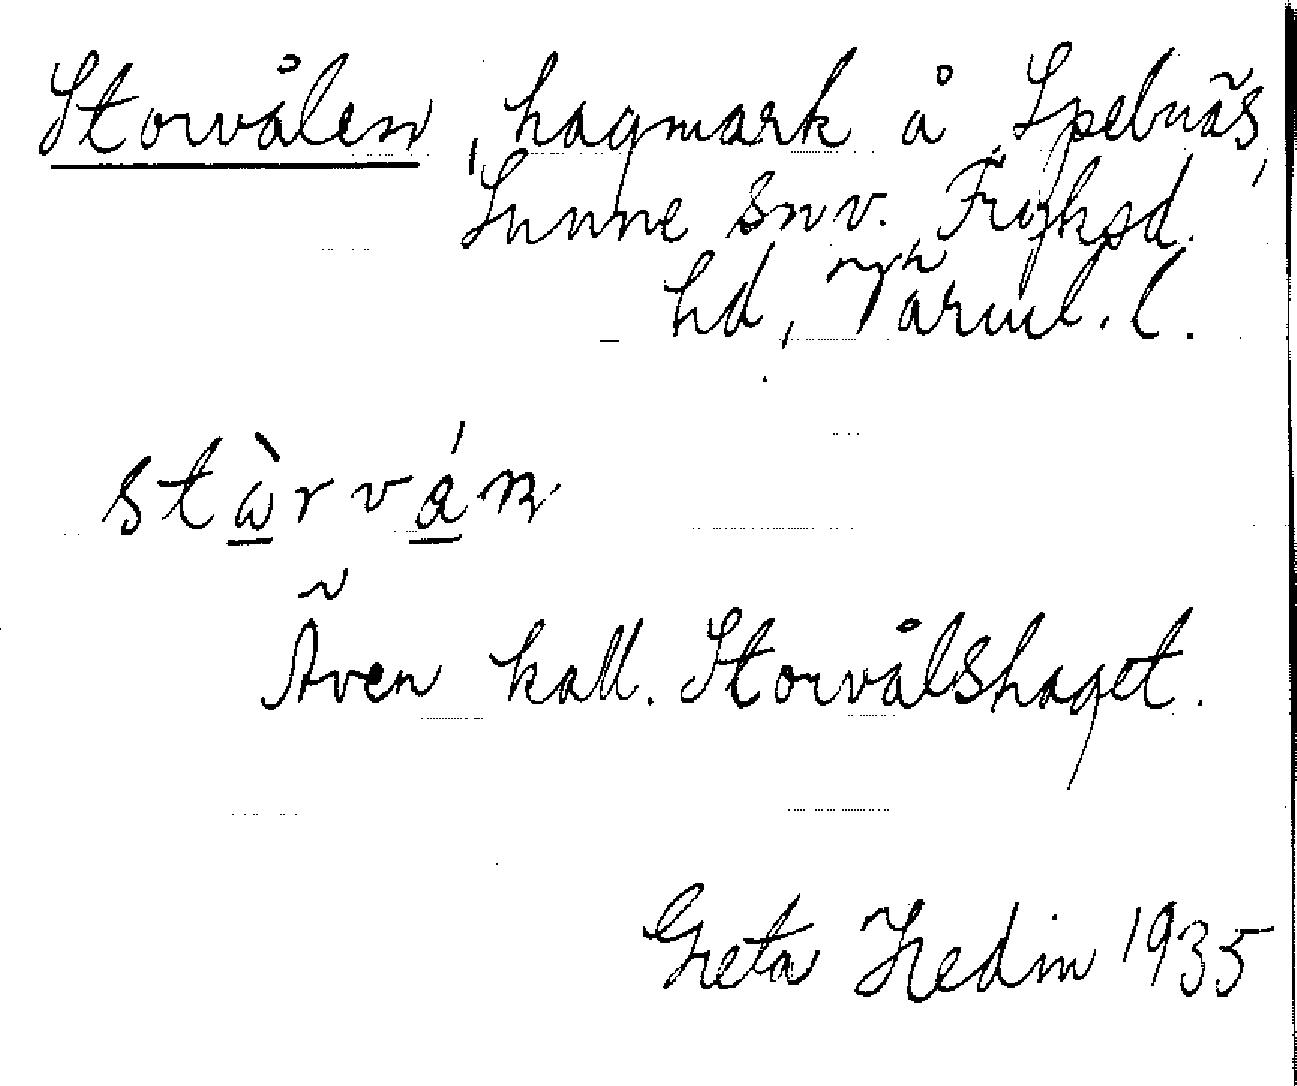 Storvålen, hagmark å Spelnäs,
Sunne snv. Fryksd.
hd, Värml. l.
stὼ̲rvá̲n
Även kall. Storvålshaget.
Greta Hedin 1935